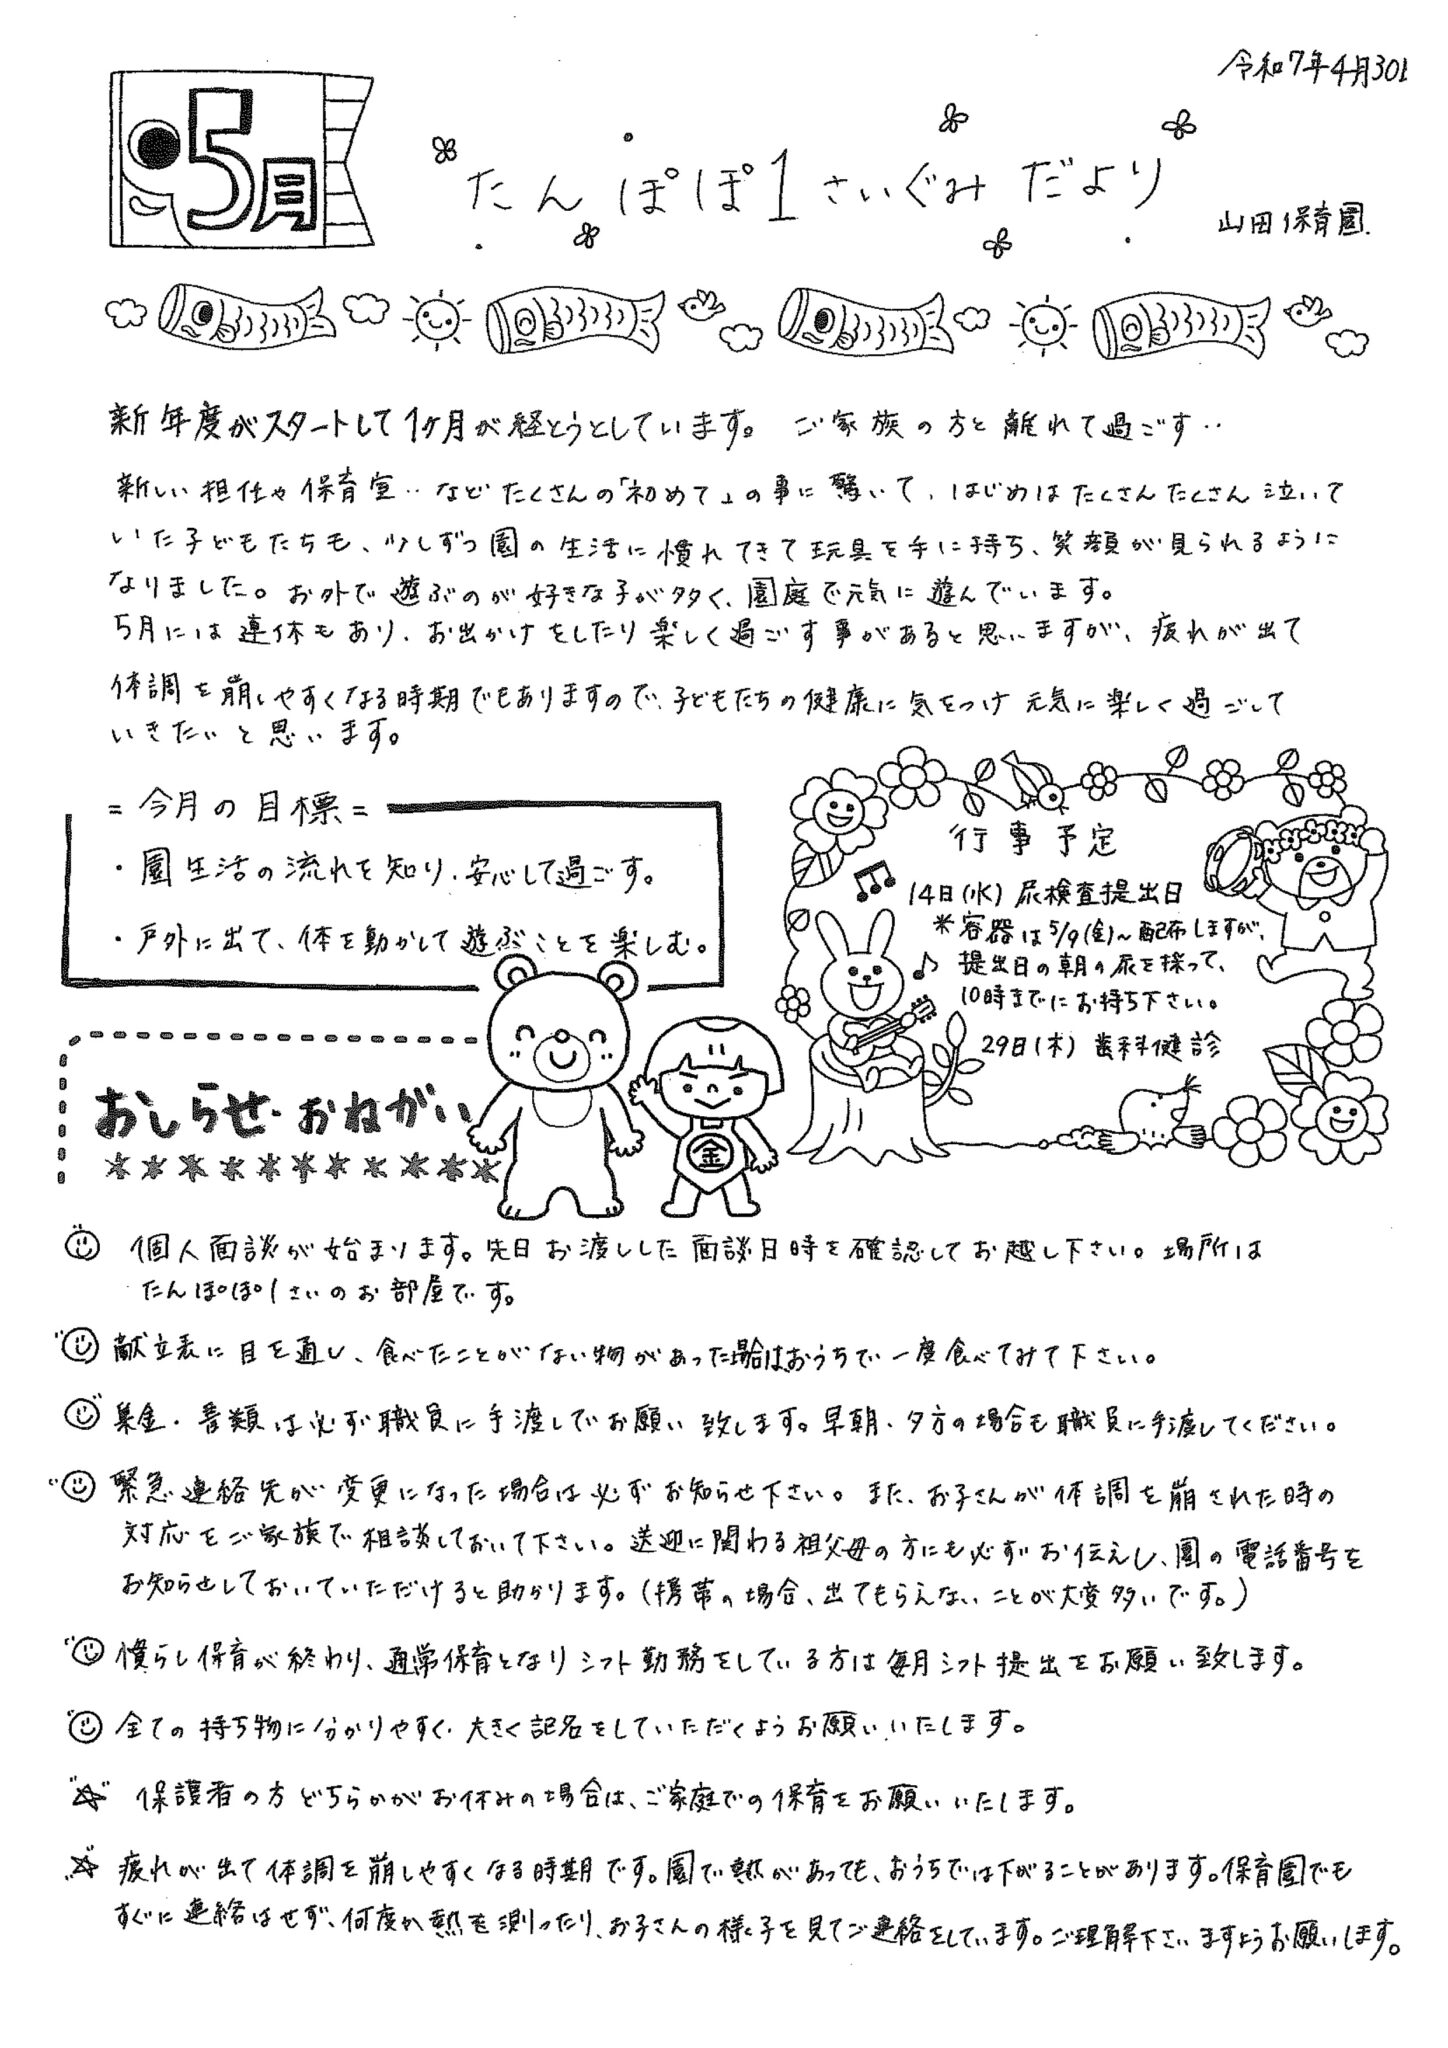 令和7年4月30日
5月
たんぽぽ1さいぐみ だより
山田保育園.
新年度がスタートして1ヶ月が経とうとしています。 ご家族の方と離れて過ごす‥
新しい担任や保育室‥などたくさんの「初めて」の事に驚いて、はじめはたくさんたくさん泣いて
いた子どもたちも、少しずつ園の生活に慣れてきて玩具を手に持ち、笑顔が見られるように
なりました。お外で遊ぶのが好きな子が多く、園庭で元気に遊んでいます。
5月には連休もあり、お出かけをしたり楽しく過ごす事があると思いますが、疲れが出て
体調を崩しやすくなる時期でもありますので、子どもたちの健康に気をつけ元気に楽しく過ごして
いきたいと思います。
=今月の目標=
・園生活の流れを知り、安心して過ごす。
・戸外に出て、体を動かして遊ぶことを楽しむ。
行事予定
14日(水) 尿検査提出日
*容器は5/9(金)~配布しますが、
提出日の朝の尿を採って、
10時までにお持ち下さい。
29日(木) 歯科健診
金
おしらせ・おねがい
個人面談が始まります。先日お渡しした面談日時を確認してお越し下さい。場所は
たんぽぽ1さいのお部屋です。
献立表に目を通し、食べたことがない物があった場合はおうちで一度食べてみて下さい。
集金・書類は必ず職員に手渡しでお願い致します。早朝・夕方の場合も職員に手渡してください。
緊急連絡先が変更になった場合は必ずお知らせ下さい。また、お子さんが体調を崩された時の
対応をご家族で相談しておいて下さい。送迎に関わる祖父母の方にも必ずお伝えし、園の電話番号を
お知らせしておいていただけると助かります。(携帯の場合、出てもらえないことが大変多いです。)
慣らし保育が終わり、通常保育となりシフト勤務をしている方は毎月シフト提出をお願い致します。
全ての持ち物に分かりやすく、大きく記名をしていただくようお願いいたします。
保護者の方どちらかがお休みの場合は、ご家庭での保育をお願いいたします。
疲れが出て体調を崩しやすくなる時期です。園で熱があっても、おうちでは下がることがあります。保育園でも
すぐに連絡はせず、何度か熱を測ったり、お子さんの様子を見てご連絡をしています。ご理解下さいますようお願いします。